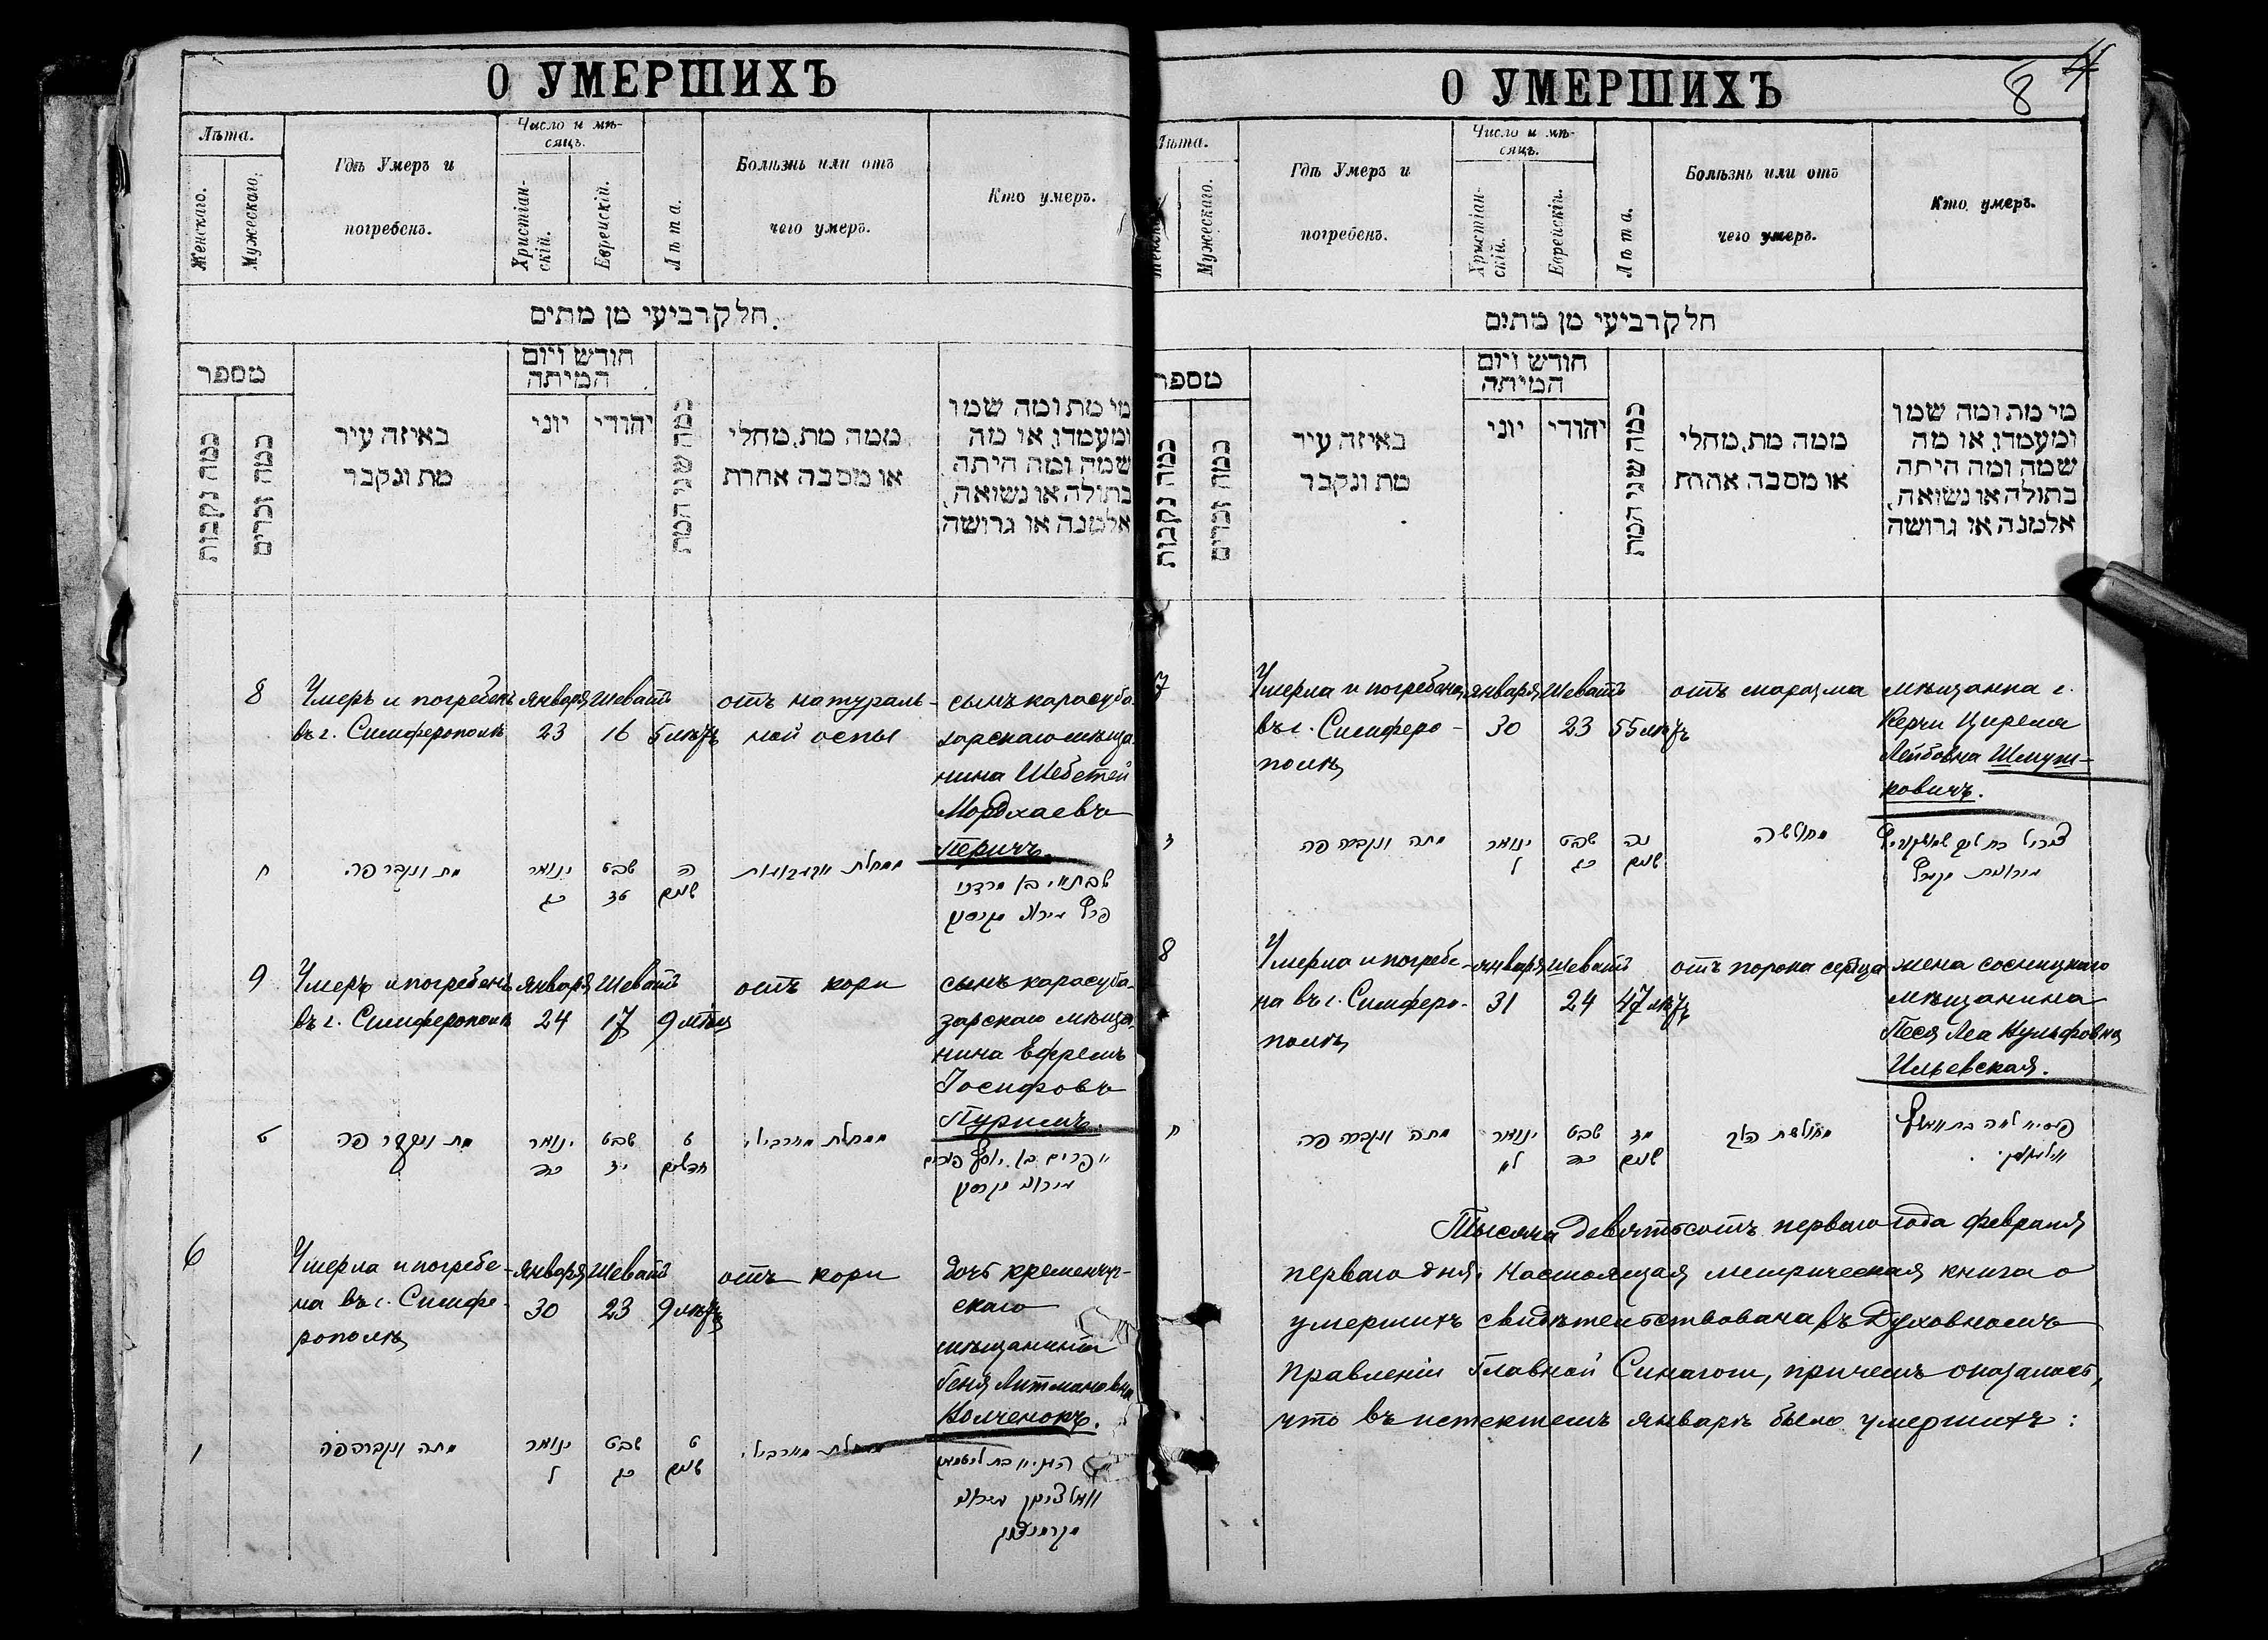 О УМЕРШИХЪ
Лѣта.
Женскаго.
Мужескаго.
Гдѣ Умеръ и
погребенъ.
Число и мѣ-
сяцъ.
Христіан-
скій.
Еврейскій.
Лѣта.
Болѣзнь или отъ
чего умеръ.
Кто умеръ.
חלק רביעי מן מתים
מספר
כמה נקבות
כמה זכרים
באיזה עיר
מת ונקבר
חודש ויום
המיתה
יוני
יהודי
כמה שני המת
ממה מת, מחלי
או מסבה אחרת
מי מת ומה שמו
ומעמדו, או מה
שמה ומה היתה
בתולה או נשואה,
אלמנה או גרושה
8
Умеръ и погребенъ
въ г. Симферополѣ
января
23
Шеватъ
16
5 лѣтъ
отъ натураль-
ной оспы
сынъ карасуба-
зарскаго мѣща-
нина Шебетей
Мордхаевъ
Перичъ.
ח
מת ונקבר פה
ינואר
כג
שבט
טז
ה
שנים
9
Умеръ и погребенъ
въ г. Симферополѣ
января
24
Шеватъ
17
9 мѣц
отъ кори
сынъ карасуба-
зарскаго мѣща-
нина Ефремъ
Іосифовъ
Пуримъ.
ט
מת ונקבר פה
ינואר
כד
שבט
יז
ט
חדשים
אפרים בן יוסף פורים
6
Умерла и погребе-
на въ г. Симфе-
рополѣ
января
30
Шеватъ
23
9 лѣтъ
отъ кори
дочь кременчуг-
скаго
мѣщанина
Геня Литмановна
Волченокъ.
ו
מתה ונקברה פה
ינואר
ל
שבט
כג
ט
שנים
О УМЕРШИХЪ
8
Лѣта.
Женскаго.
Мужескаго.
Гдѣ Умеръ и
погребенъ.
Число и мѣ-
сяцъ.
Христіан-
скій.
Еврейскій.
Лѣта.
Болѣзнь или отъ
чего умеръ.
Кто умеръ.
חלק רביעי מן מתים
מספר
כמה נקבות
כמה זכרים
באיזה עיר
מת ונקבר
חודש ויום
המיתה
יוני
יהודי
כמה שני המת
ממה מת, מחלי
או מסבה אחרת
מי מת ומה שמו
ומעמדו, או מה
שמה ומה היתה
בתולה או נשואה,
אלמנה או גרושה
7
Умерла и погребена
въ г. Симферо-
полѣ
января
30
Шеватъ
23
55 лѣтъ
отъ маразма
мѣщанка г.
Керчи Цирема
Лейбовна Шмуш-
ковичъ.
ז
מתה ונקברה פה
ינואר
ל
שבט
כג
נה
שנים
מחולשה
8
Умерла и погребе-
на въ г. Симферо-
полѣ
января
31
Шеватъ
24
47 лѣтъ
отъ порока сердца
жена сосницкаго
мѣщанина
Песя Леа Вульфовна
Ильевская.
ח
מתה ונקברה פה
ינואר
לא
שבט
כד
מז
שנים
מחולשת הלב
Тысяча девятьсотъ перваго года февраля
перваго дня. Настоящая метрическая книга о
умершихъ свидѣтельствована въ Духовномъ
Правленіи Главной Синагоги, причемъ оказалось,
что въ истекшемъ январѣ было умершихъ: